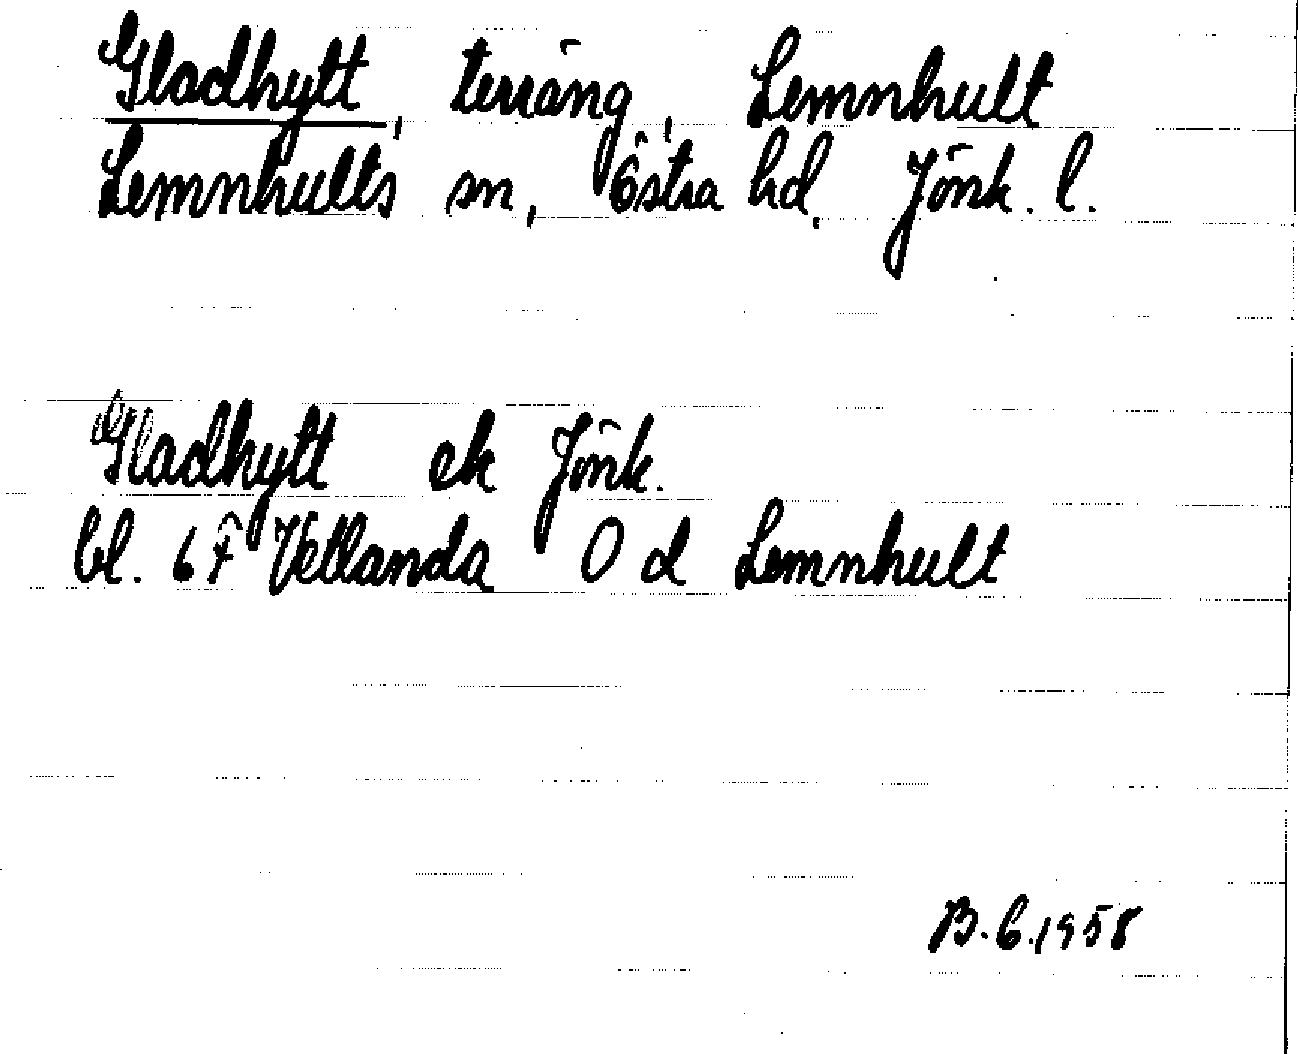 Gladhytt, terräng, Lemnhult
Lemnhults sn, Östra hd, Jönk. l.
Gladhytt ek Jönk.
bl. 67 Vetlanda O d Lemnhult
B.G.1958